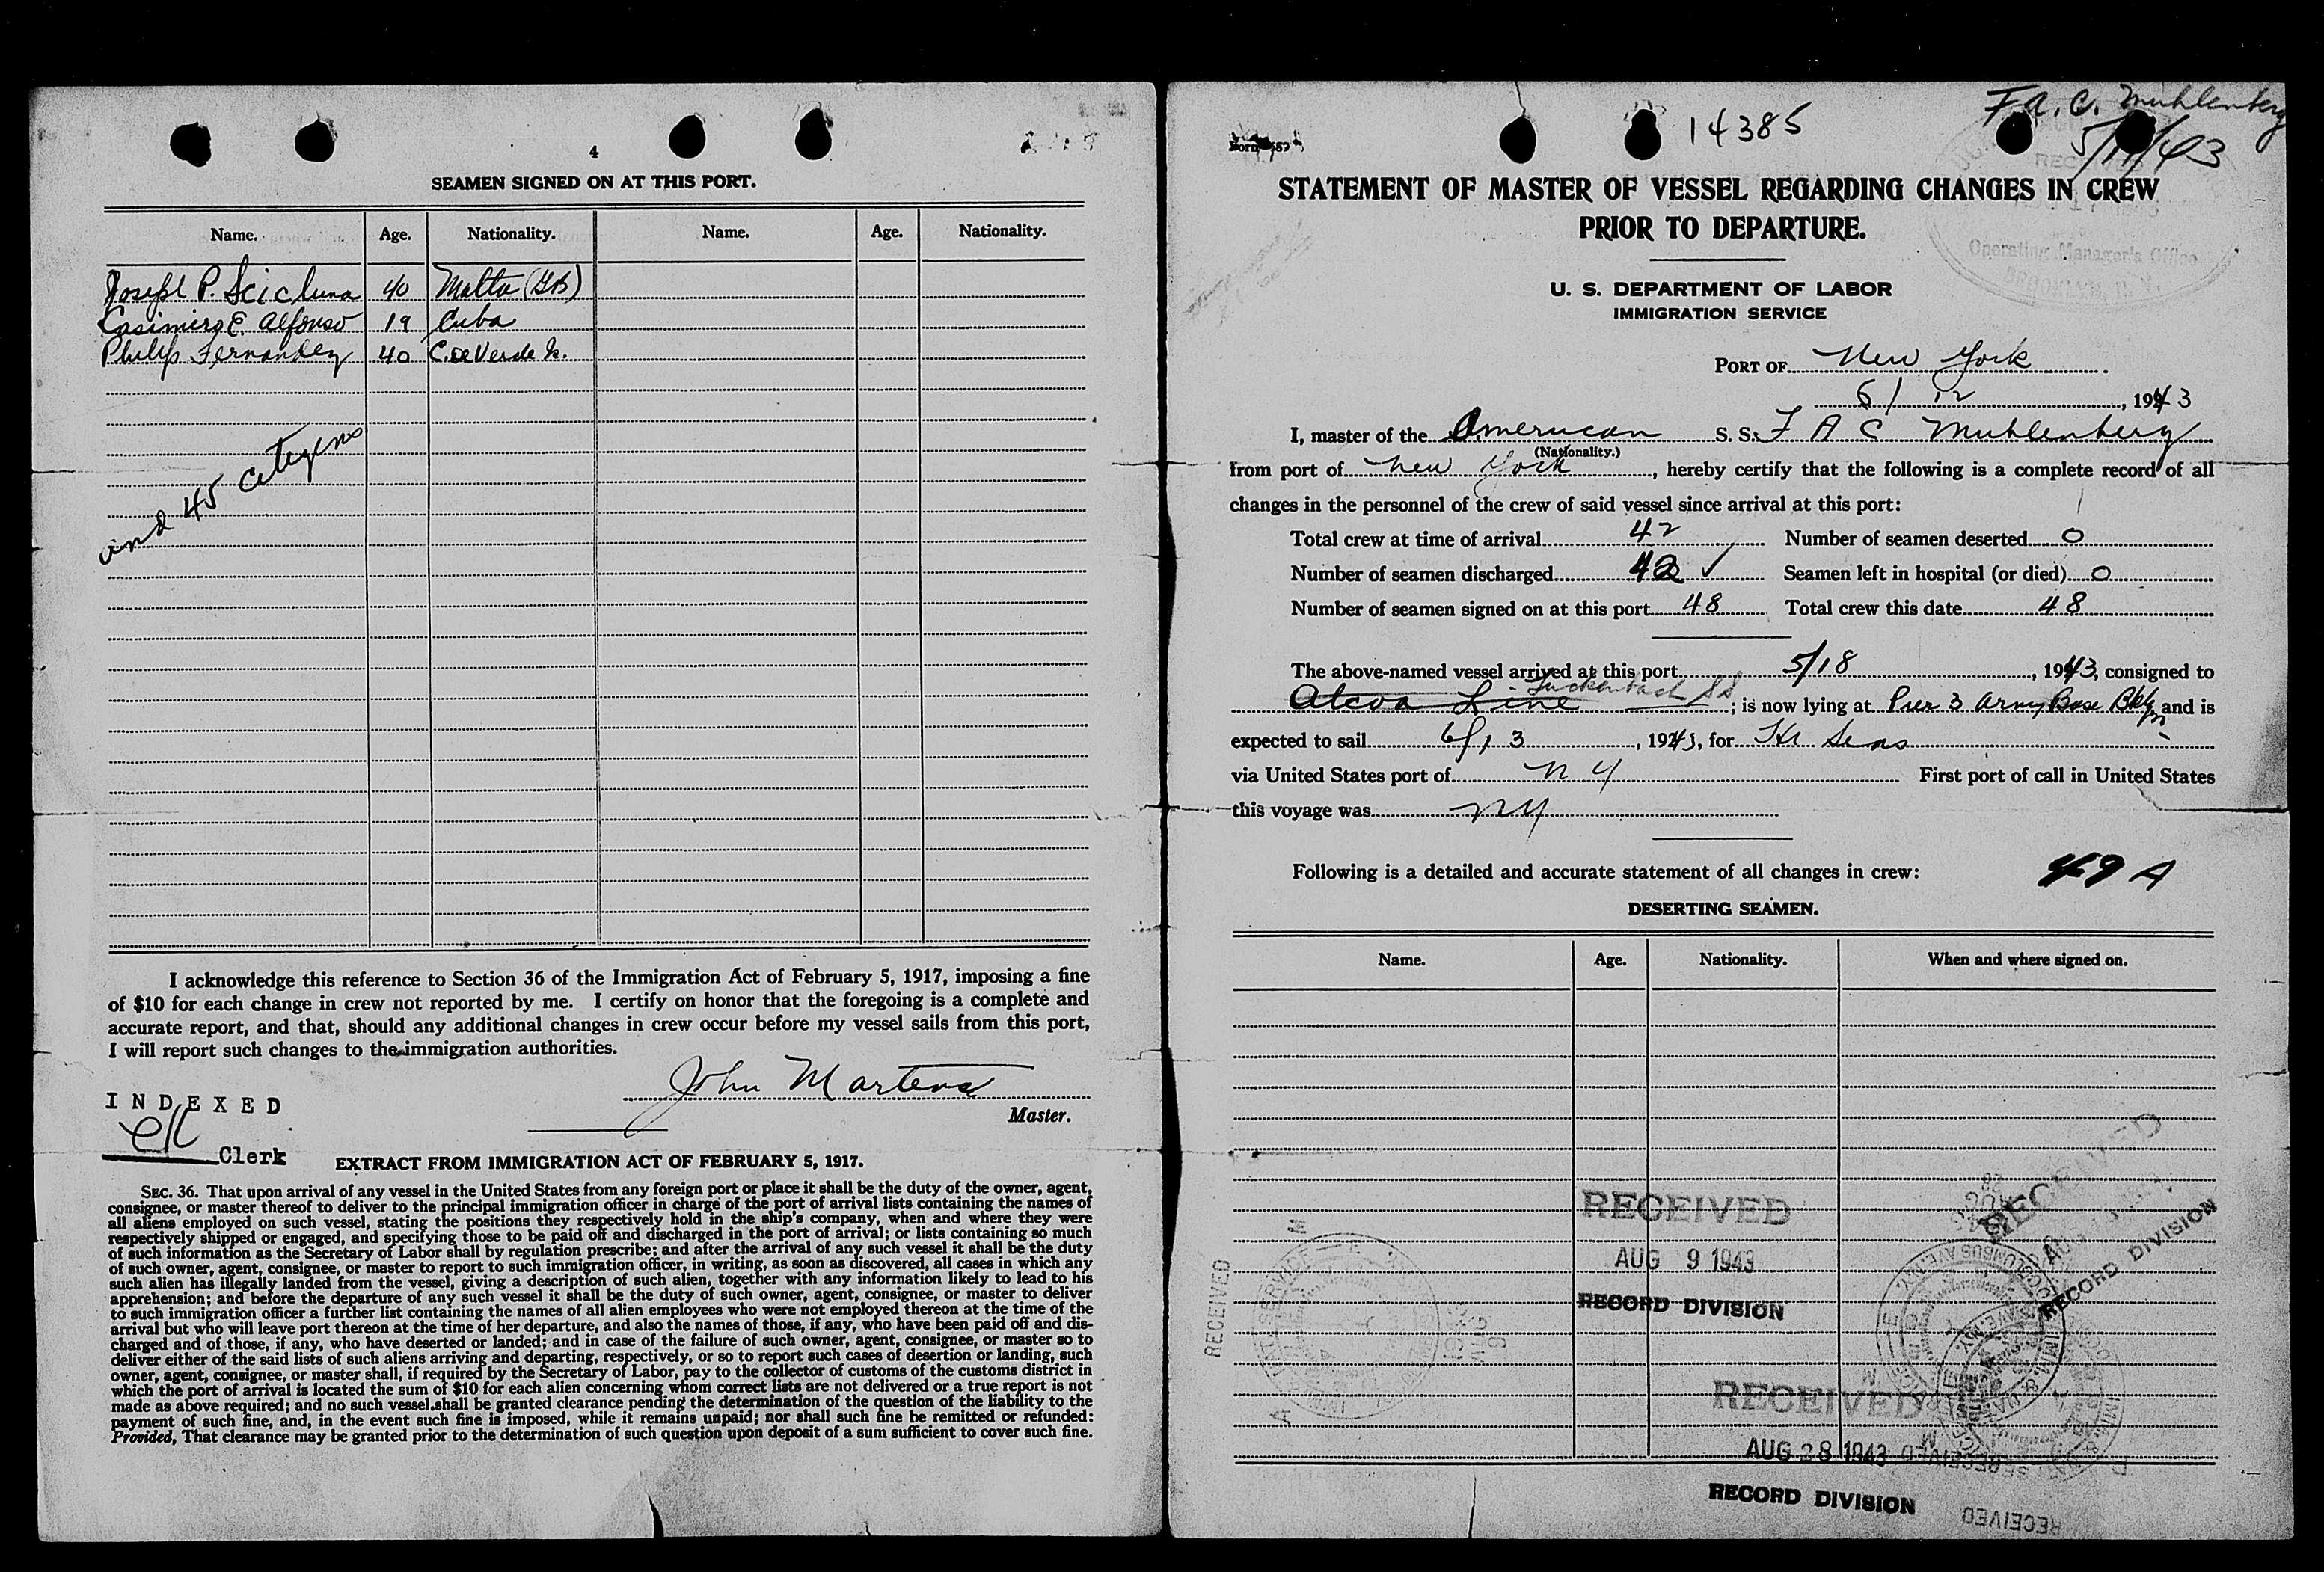 4
SEAMEN SIGNED ON AT THIS PORT.
Name. Age. Nationality. Name. Age. Nationality.
Joseph P. Scicluna 40 Malta (GB)
Casimiro E. Alfonso 19 Cuba
Philip Fernandez 40 C. de Verde Is.
and 45 citizens
I acknowledge this reference to Section 36 of the Immigration Act of February 5, 1917, imposing a fine
of $10 for each change in crew not reported by me. I certify on honor that the foregoing is a complete and
accurate report, and that, should any additional changes in crew occur before my vessel sails from this port,
I will report such changes to the immigration authorities.
John Martens
Master.
INDEXED
Clerk
EXTRACT FROM IMMIGRATION ACT OF FEBRUARY 5, 1917.
SEC. 36. That upon arrival of any vessel in the United States from any foreign port or place it shall be the duty of the owner, agent,
consignee, or master thereof to deliver to the principal immigration officer in charge of the port of arrival lists containing the names of
all aliens employed on such vessel, stating the positions they respectively hold in the ship's company, when and where they were
respectively shipped or engaged, and specifying those to be paid off and discharged in the port of arrival; or lists containing so much
of such information as the Secretary of Labor shall by regulation prescribe; and after the arrival of any such vessel it shall be the duty
of such owner, agent, consignee, or master to report to such immigration officer, in writing, as soon as discovered, all cases in which any
such alien has illegally landed from the vessel, giving a description of such alien, together with any information likely to lead to his
apprehension; and before the departure of any such vessel it shall be the duty of such owner, agent, consignee, or master to deliver
to such immigration officer a further list containing the names of all alien employees who were not employed thereon at the time of the
arrival but who will leave port thereon at the time of her departure, and also the names of those, if any, who have been paid off and dis-
charged and of those, if any, who have deserted or landed; and in case of the failure of such owner, agent, consignee, or master so to
deliver either of the said lists of such aliens arriving and departing, respectively, or so to report such cases of desertion or landing, such
owner, agent, consignee, or master shall, if required by the Secretary of Labor, pay to the collector of customs of the customs district in
which the port of arrival is located the sum of $10 for each alien concerning whom correct lists are not delivered or a true report is not
made as above required; and no such vessel shall be granted clearance pending the determination of the question of the liability to the
payment of such fine, and, in the event such fine is imposed, while it remains unpaid; nor shall such fine be remitted or refunded:
Provided, That clearance may be granted prior to the determination of such question upon deposit of a sum sufficient to cover such fine.
14385
F. A. C. Muhlenberg
5/11/43
STATEMENT OF MASTER OF VESSEL REGARDING CHANGES IN CREW
PRIOR TO DEPARTURE.
Operating Manager's Office
U. S. DEPARTMENT OF LABOR
IMMIGRATION SERVICE
PORT OF New York
6/12, 1943
I, master of the American S. S. F A C Muhlenberg
(Nationality.)
from port of New York, hereby certify that the following is a complete record of all
changes in the personnel of the crew of said vessel since arrival at this port:
Total crew at time of arrival 42 Number of seamen deserted 0
Number of seamen discharged 42 ✓ Seamen left in hospital (or died) 0
Number of seamen signed on at this port 48 Total crew this date 48
The above-named vessel arrived at this port 5/18, 1943, consigned to
Alcoa Line Luckenbach SS; is now lying at Pier 3 Army Base Bklyn and is
expected to sail 6/13, 1943, for Hi Seas
via United States port of N Y First port of call in United States
this voyage was NY
Following is a detailed and accurate statement of all changes in crew: 49 A
DESERTING SEAMEN.
Name. Age. Nationality. When and where signed on.
RECEIVED
AUG 9 1943
RECORD DIVISION
RECEIVED
RECORD DIVISION
RECEIVED
RECEIVED
AUG 28 1943
RECORD DIVISION
RECEIVED